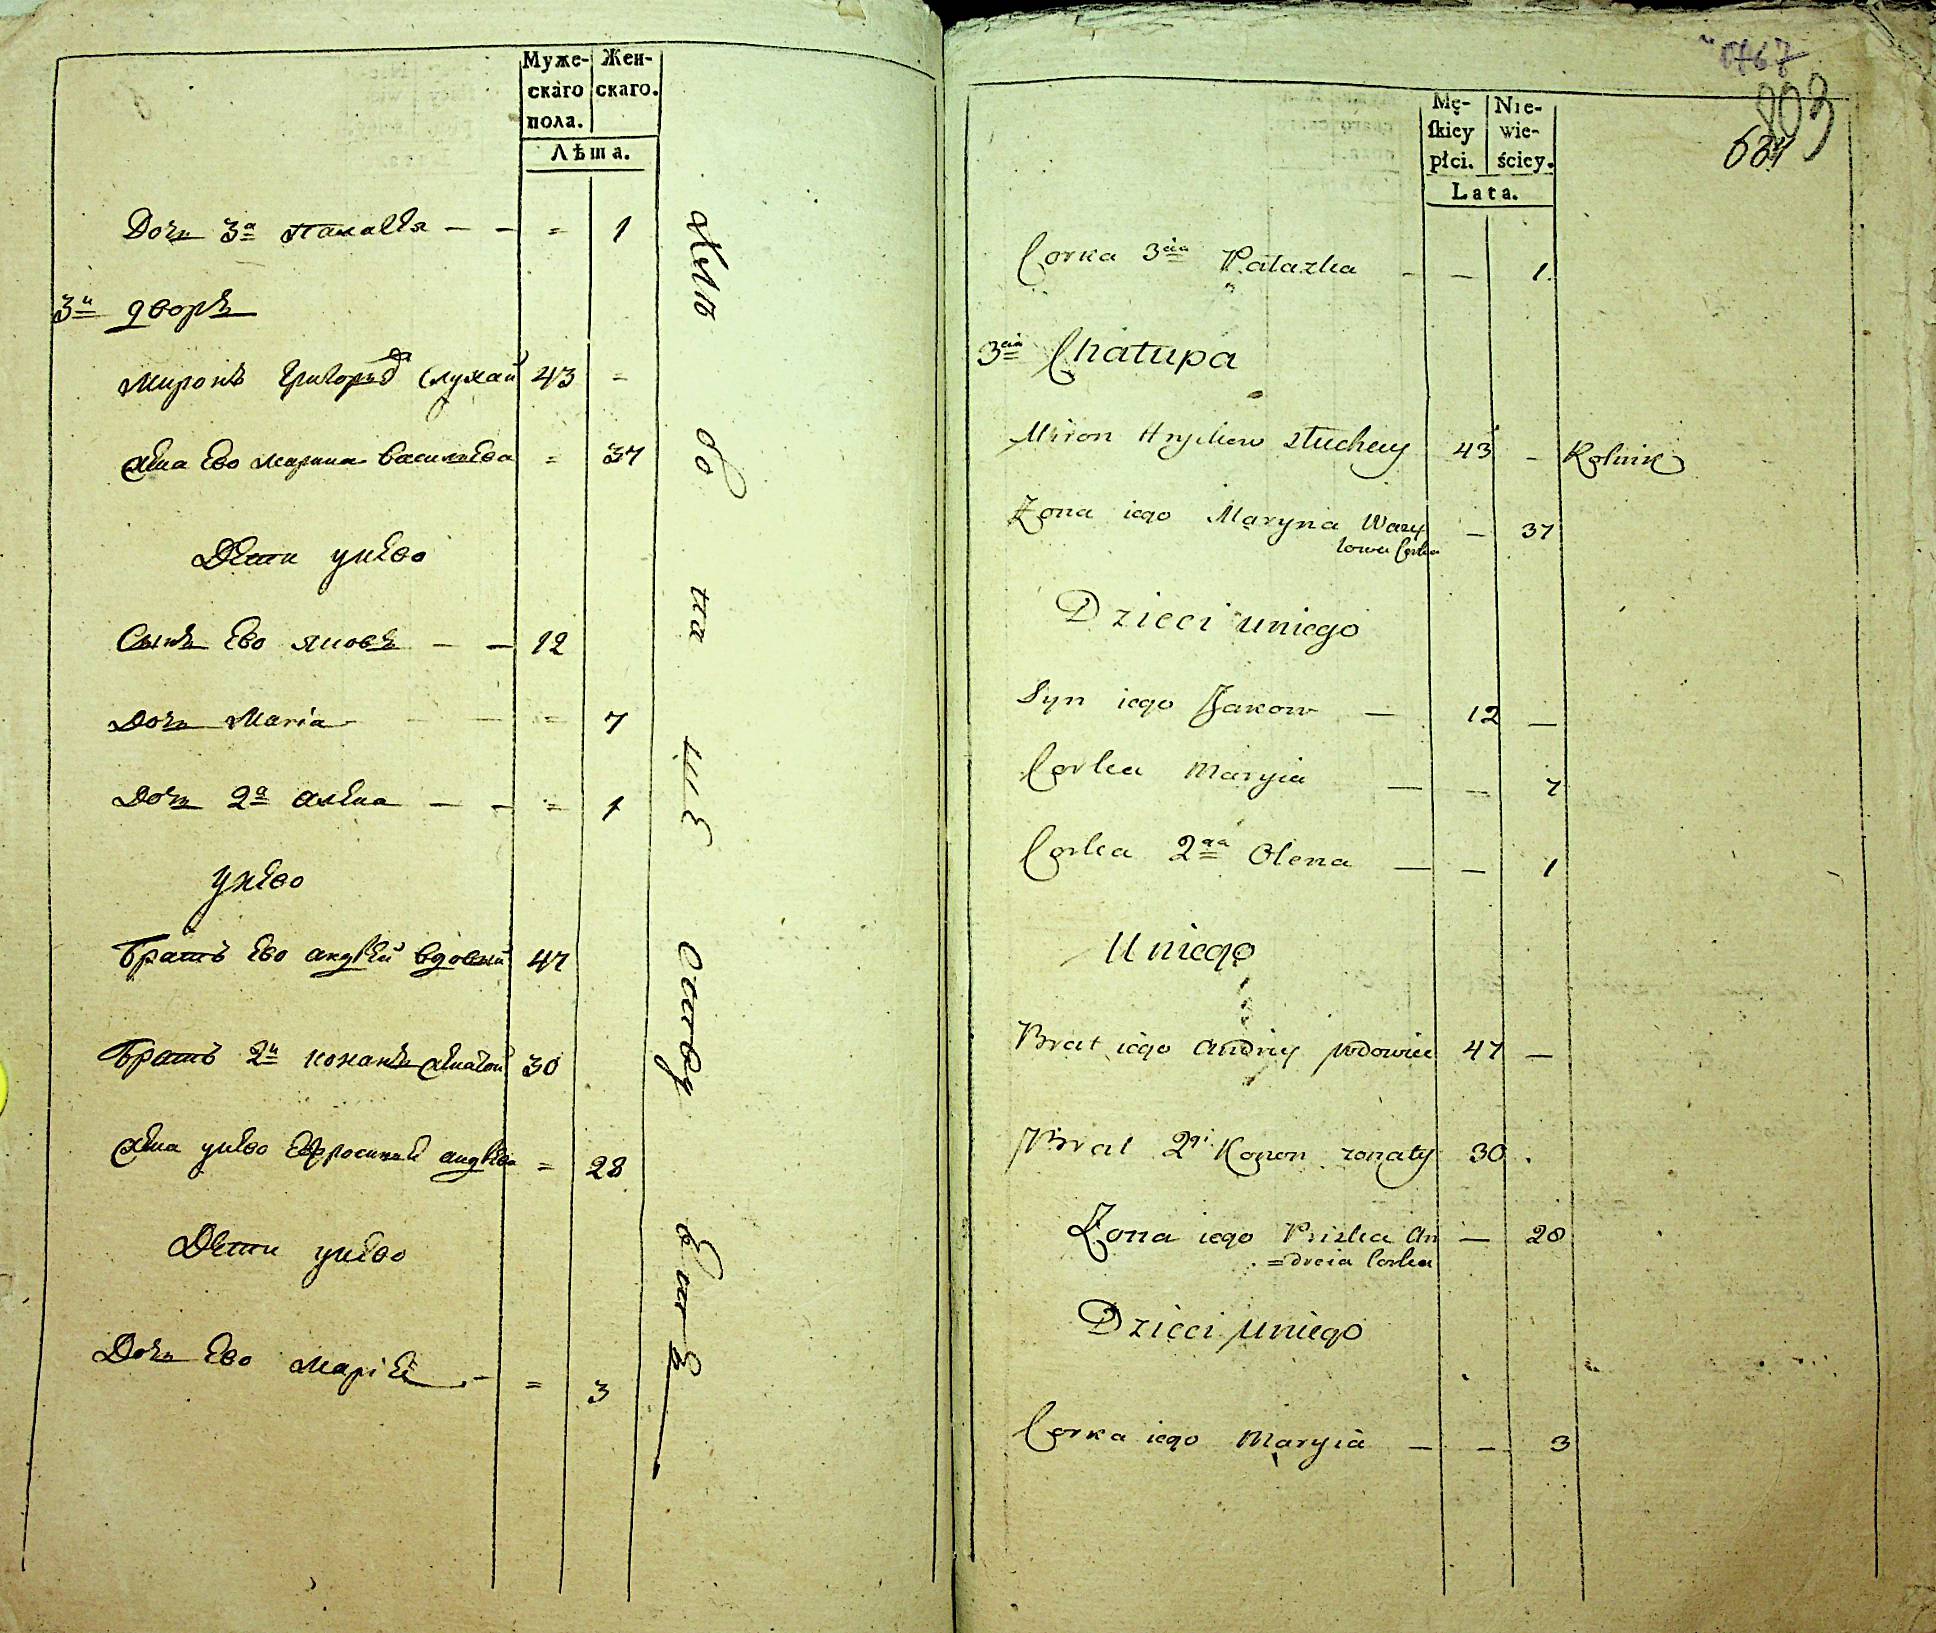 Муже-
скаго
пола.
Жен-
скаго.
Лѣта.
Дочь 3а Палазка — — = 1
3й дворъ
Миронъ Григорьевъ Слухай 43 =
Жена ево Марина Васильева = 37
Дети унево
Сынъ ево Яковъ — — 12
Дочь Maria — — = 7
Дочь 2а Алена — — = 1
Унево
Братъ ево Андрей вдовый 47
Братъ 2й Конанъ женатой 30
Жена унево Ефросиния Андреева = 28
Дети унево
Дочь ево Марія — = 3
Mę-
skiey
płci.
Nie-
wie-
ściey.
Lata.
803
Corka 3cia Palazka — — 1
3cia Chałupa
Miron Hryckow Słuchay 43 — Rolnik
Żona iego Maryna Wazy — 37
lowa Corka
Dzieci uniego
Syn iego Jakow — 12 —
Corka Maryia — — 7
Corka 2ga Olena — — 1
Uniego
Brat iego Andriy wdowiec 47 —
Brat 2gi Konon zonaty 30 .
Żona iego Priska An — 28
=dreia Corka
Dzieci uniego
Corka iego Maryia — — 3